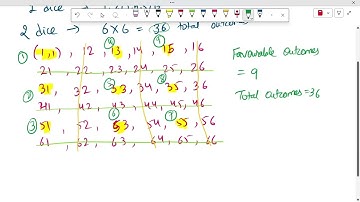 2 dice → 6×6 = 36 total outcomes
① (1,1) , 12 , 13 , 14 , 15 , 16
④
21 22 , 23 , 24 , 25 , 26
Favourable outcomes
= 9
② 31 , 32 , 33 , 34 , 35 , 36
Total outcomes = 36
41 42 43 , 44 , 45 , 46
③ 51 , 52 , 53 , 54 , 55 , 56
61 , 62 , 63 , 64 , 65 , 66